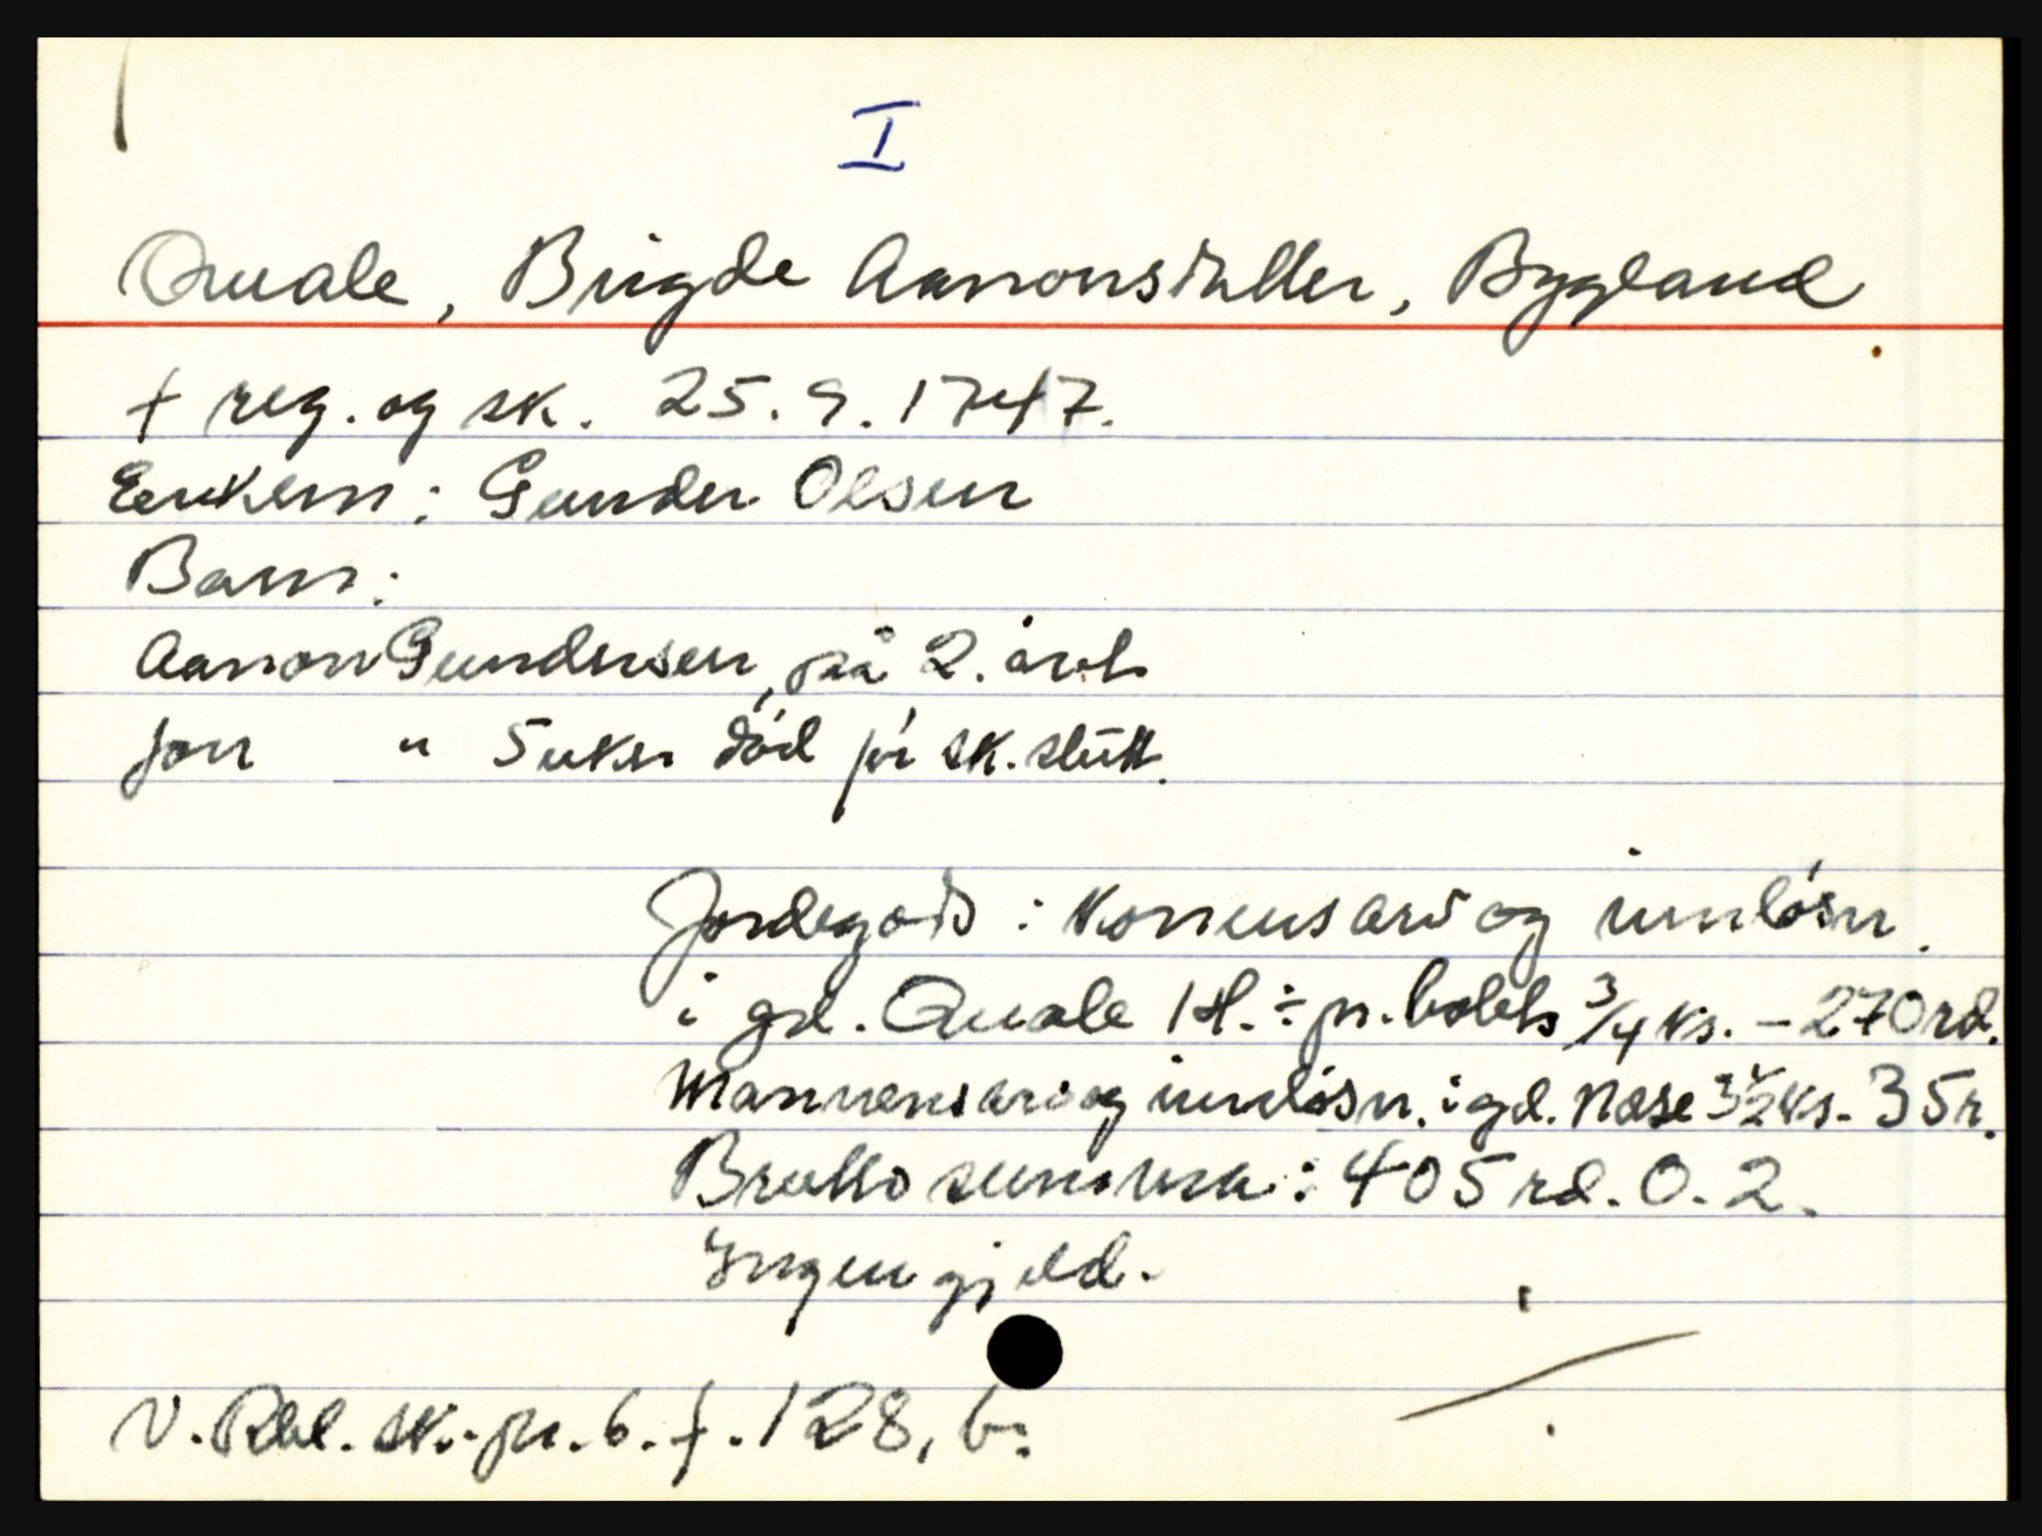 I
Quale, Birgde Aanonsdatter, Bygland
+ reg. og sk. 25.9.1747.
Enkem: Gunder Olsen
Barn:
Aanon Gundersen, på 2. året
Jon " 5 uker død før sk. slutt.
Jordegods: Konens arv og innløsn.
i gd. Quale 1 H. ÷ pr. bolets 3/4 ks. - 270 rd.
Mannens arv og innløsn. i gd. Nese 3 1/2 ks. 35 r.
Brutto summa: 405 rd. 0. 2.
Ingen gjeld.
V. Rbl. sk. pr. 6. f. 128, b.